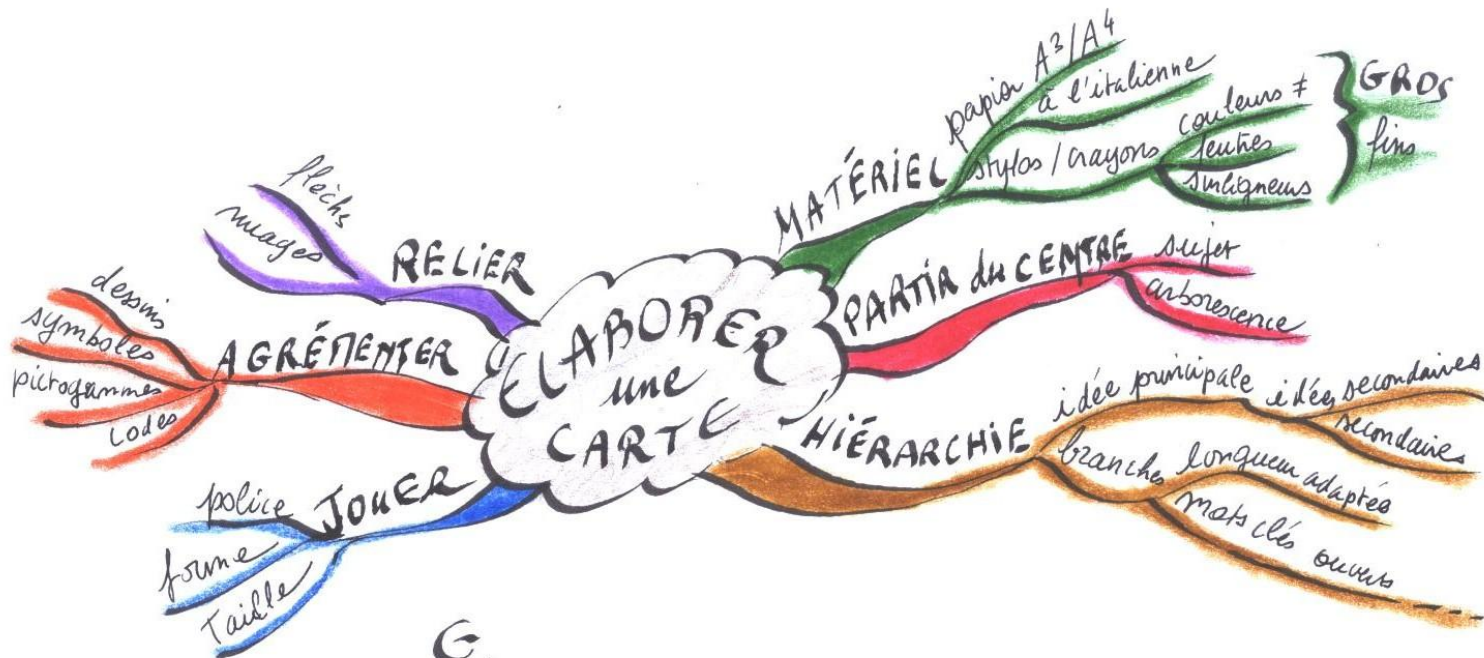 ÉLABORER
une
CARTE
MATÉRIEL
papier A3/A4
à l'italienne
stylos / crayons
couleurs ≠
feutres
surligneurs
GROS
fins
PARTIR du CENTRE
sujet
arborescence
HIÉRARCHIE
idée principale
idées secondaires
secondaires
branches
longueur adaptées
mots clés ouverts
JOUER
police
forme
Taille
AGRÉMENTER
dessins
symboles
pictogrammes
codes
RELIER
flèchs
nuages